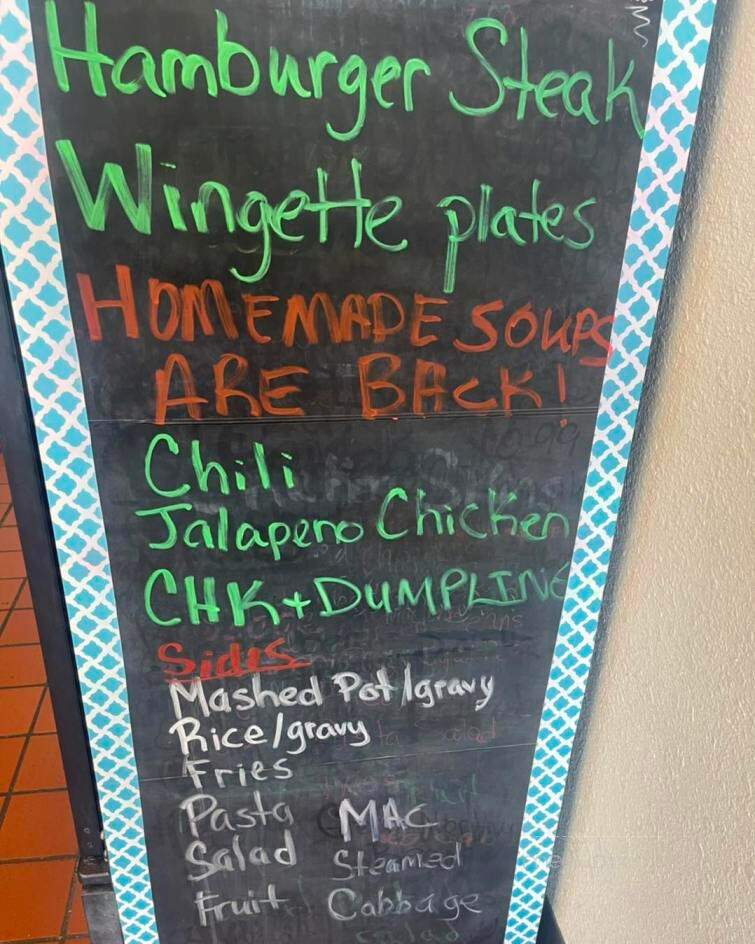 Hamburger Steak
Wingette plates
HOMEMADE SOUPS
ARE BACK!
Chili
Jalapeno Chicken
CHK+DUMPLING
Sides
Mashed Pot/gravy
Rice/gravy
Fries
Pasta MAC
Salad Steamed
Fruit Cabbage